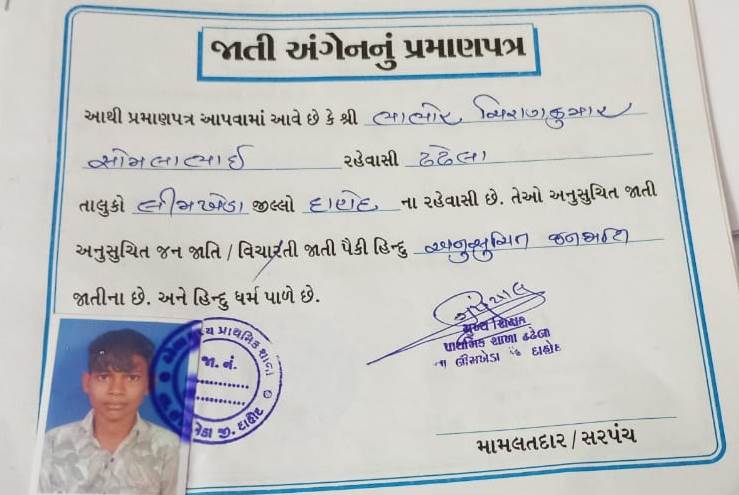 જાતી અંગેનનું પ્રમાણપત્ર
આથી પ્રમાણપત્ર આપવામાં આવે છે કે શ્રી ભાભોર ચિરાગકુમાર
સોમલાભાઈ રહેવાસી ઢઢેલા
તાલુકો લીમખેડા જીલ્લો દાહોદ ના રહેવાસી છે. તેઓ અનુસુચિત જાતી
અનુસુચિત જન જાતિ / વિચારતી જાતી પૈકી હિન્દુ અનુસુચિત જનજાતિ
જાતીના છે. અને હિન્દુ ધર્મ પાળે છે.
મુખ્ય શિક્ષક
પ્રાથમિક શાળા ઢઢેલા
તા લીમખેડા જી દાહોદ
પ્રાથમિક શાળા
જા. નં.
જી. દાહોદ
મામલતદાર / સરપંચ